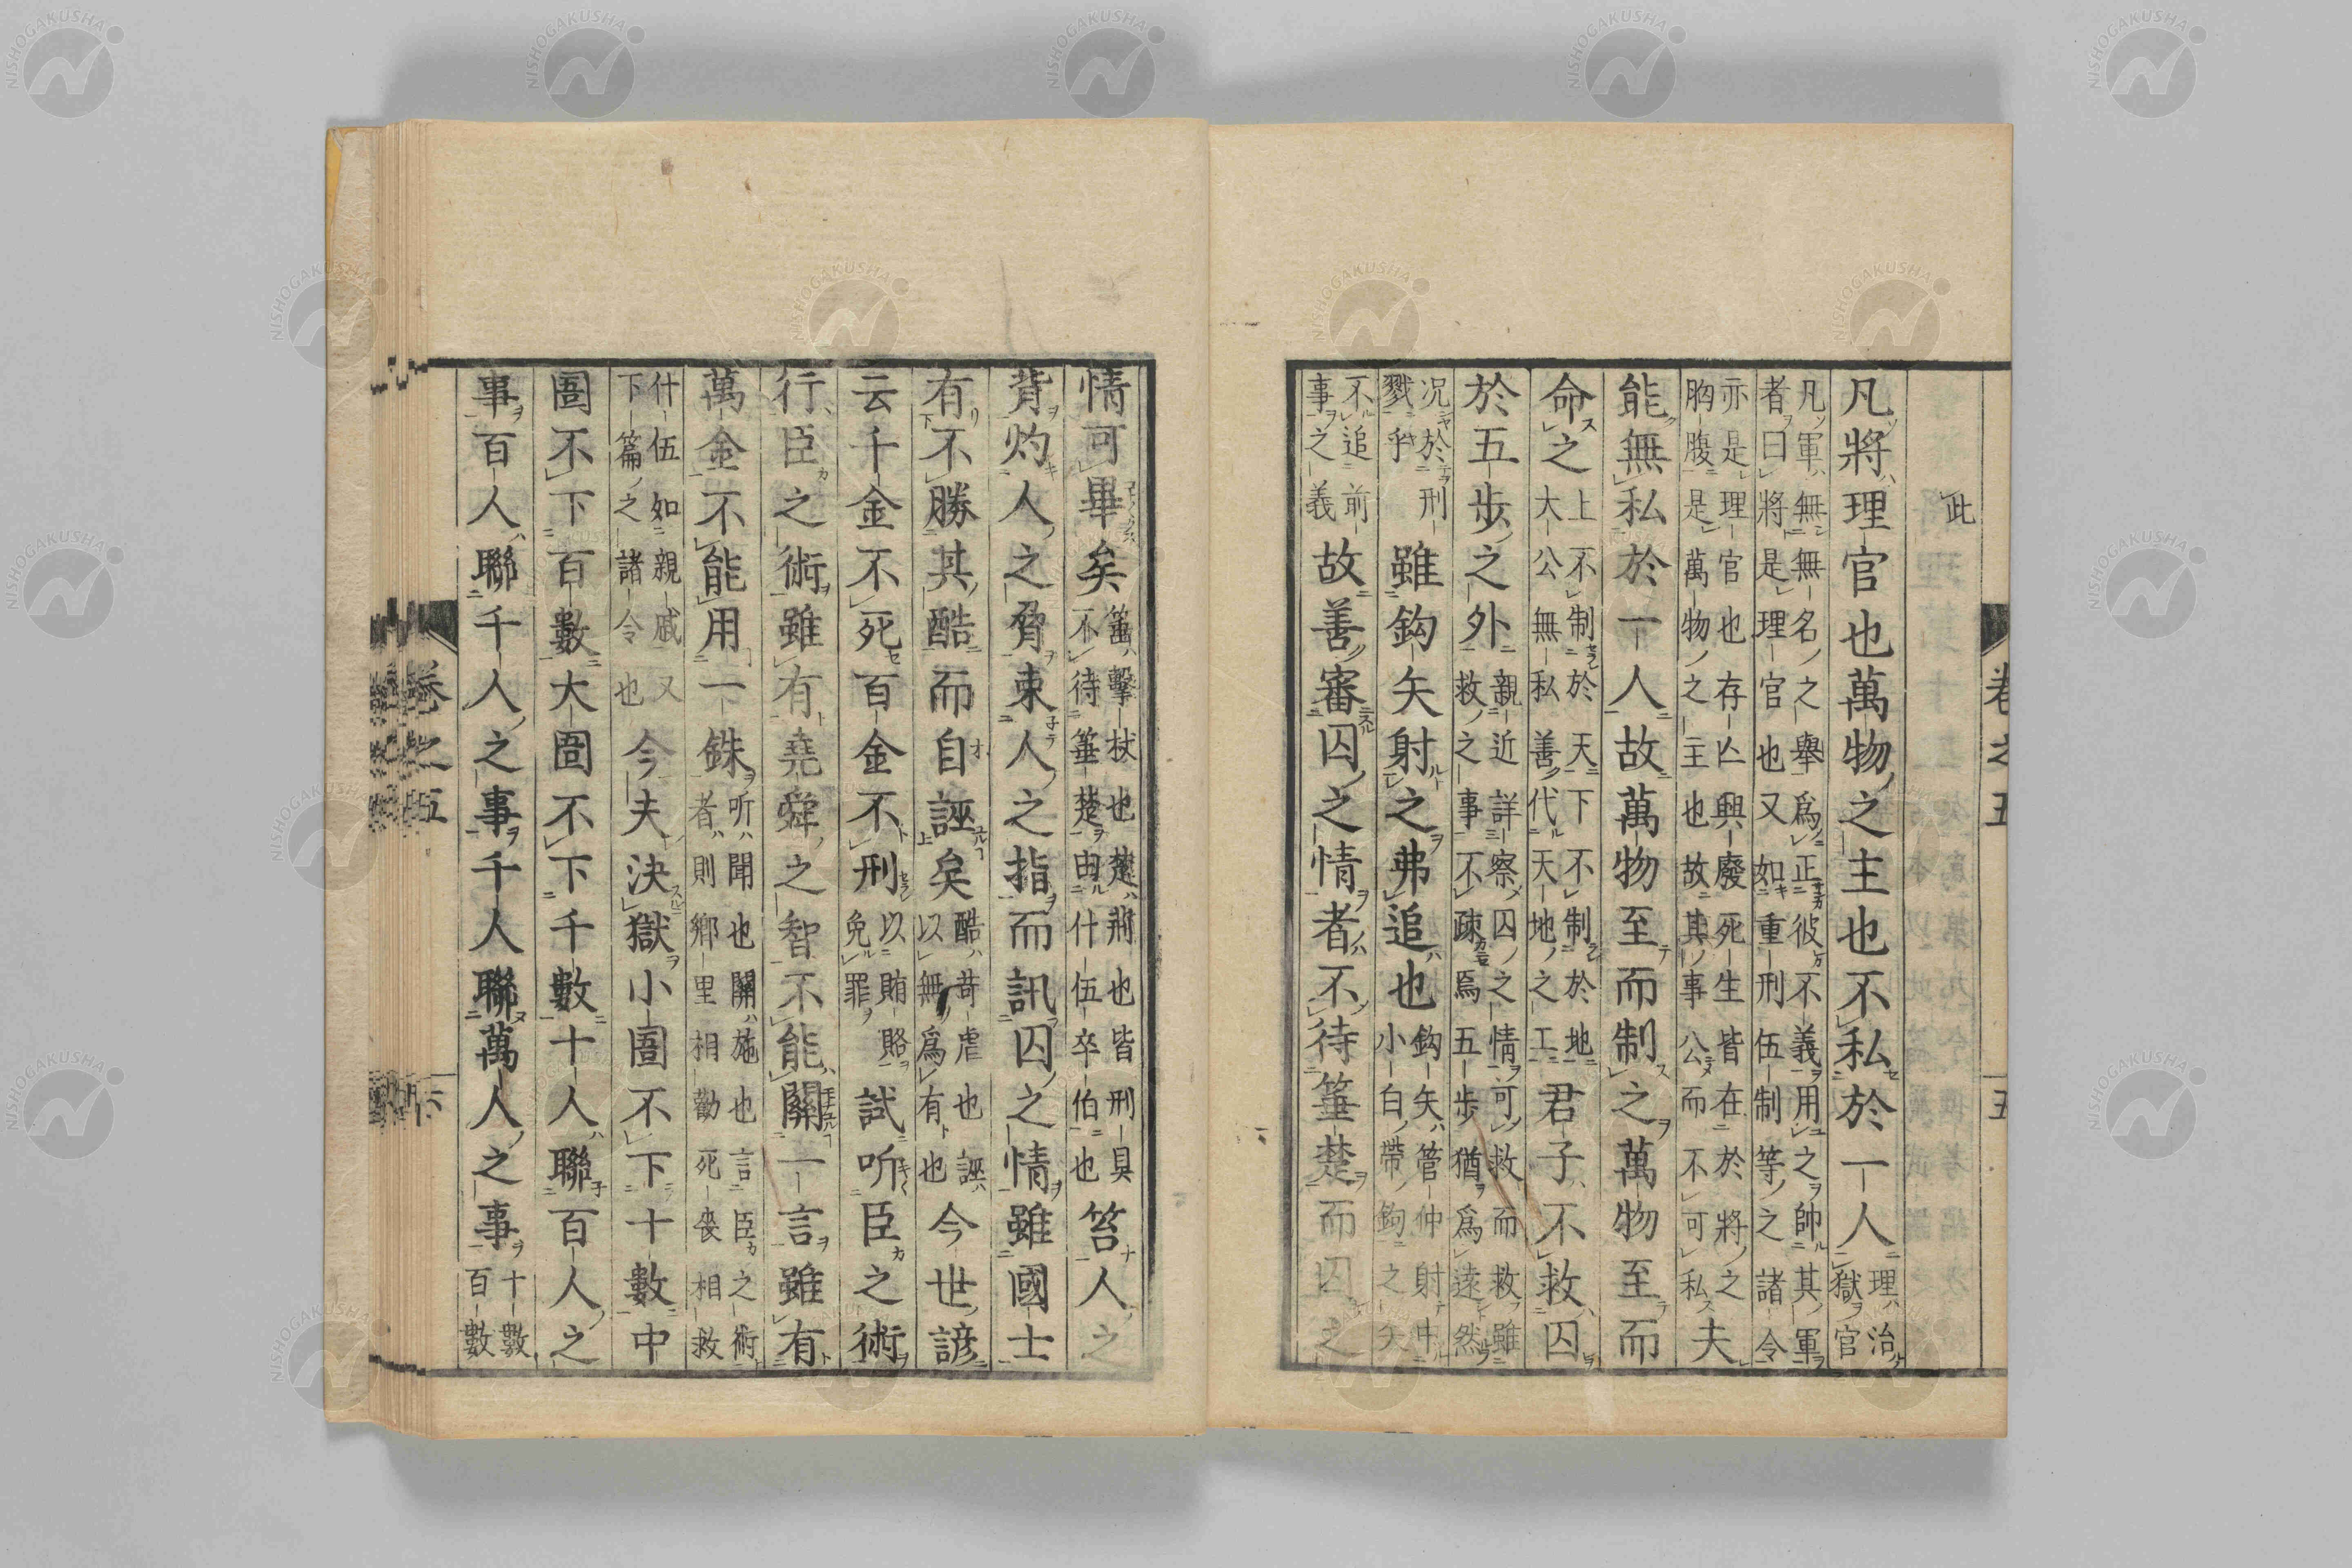 卷之五
五
此
凡將理官也萬物之主也不私於一人理治
獄官
凡軍無無名之舉爲正彼不義用之帥其軍
者曰將是理官也又如重刑伍制等之諸令
亦是理官也存亡興廢死生皆在於將之
胸腹是萬物之主也故其事公而不可私夫
能無私於一人故萬物至而制之萬物至而
命之上不制於天下不制於地
大公無私善代天地之工君子不救囚
於五步之外親近詳察囚之情可救而救雖
救之事不疎焉五步猶爲遠然
况於刑
戮乎雖鈎矢射之弗追也鈎矢管仲射中
小白帶鉤之矢
不追前
事之義故善審囚之情者不待箠楚而囚之
情可畢矣箠擊杖也楚荊也皆刑具
不待箠楚由什伍卒伯也笞人之
背灼人之脅束人之指而訊囚之情雖國士
有不勝其酷而自誣矣酷苛虐也誣
以無爲有也今世諺
云千金不死百金不刑以賄賂
免罪試听臣之術
行臣之術雖有堯舜之智不能關一言雖有
萬金不能用一銖听聞也關施也言臣之術
者則鄉里相勸死喪相救
什伍如親戚又
下篇之諸令也今夫決獄小圄不下十數中
圄不下百數大圄不下千數十人聯百人之
事百人聯千人之事千人聯萬人之事十數
百數
卷之五